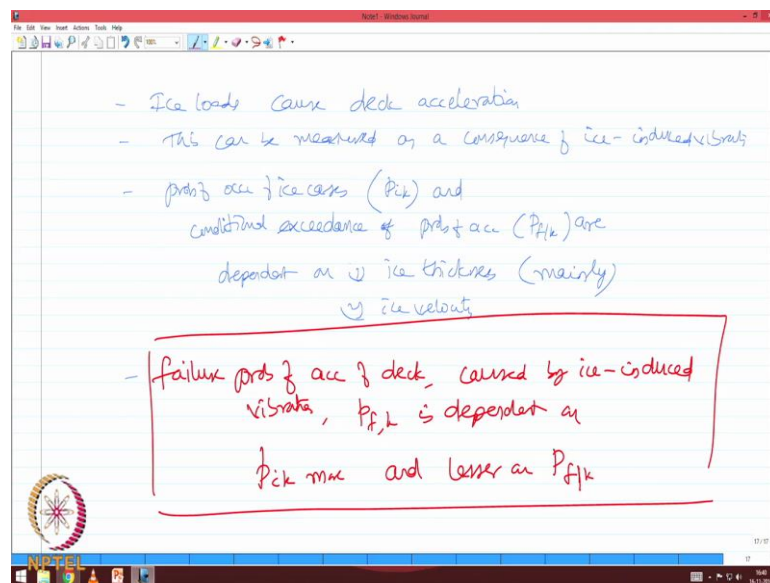 Note1 - Windows Journal
File Edit View Insert Actions Tools Help
- Ice loads cause deck acceleration
- This can be measured as a consequence of ice-induced vibrati
- prob of acc of ice cases (Pik) and
conditional exceedance of prob of acc (Pf|k) are
dependent on 1) ice thickness (mainly)
2) ice velocity
- failure prob of acc of deck, caused by ice-induced
vibration, Pf,k is dependent on
Pik more and lesser on Pf|k
NPTEL
17/17
17
16:40